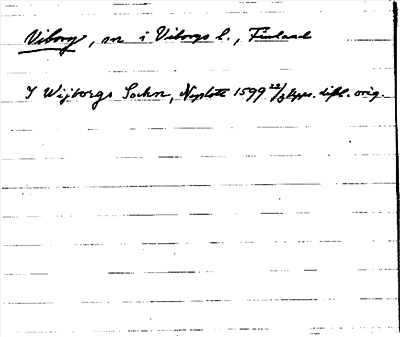 Viborg, sn i Viborgs l., Finland
I Wijborgs Sochn, Nyslott 1599 22/3 kpps. dipl. orig.